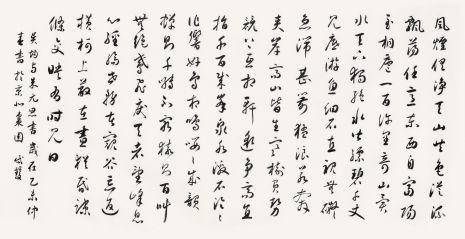 風煙俱净天山共色從流
飄蕩任意東西自富陽
至桐廬一百許里奇山異
水天下獨絶水皆縹碧千丈
見底游魚細石直視無礙
急湍甚箭猛浪若奔
夾岸高山皆生寒樹負勢
競上互相軒邈爭高直
指千百成峰泉水激石泠泠
作響好鳥相鳴嚶嚶成韻
蟬則千轉不窮猿則百叫
無絶鳶飛戾天者望峰息
心經綸世務者窺谷忘返
橫柯上蔽在晝猶昏疏
條交映有時見日
吳均與朱元思書歲在乙未仲
春書於京北園